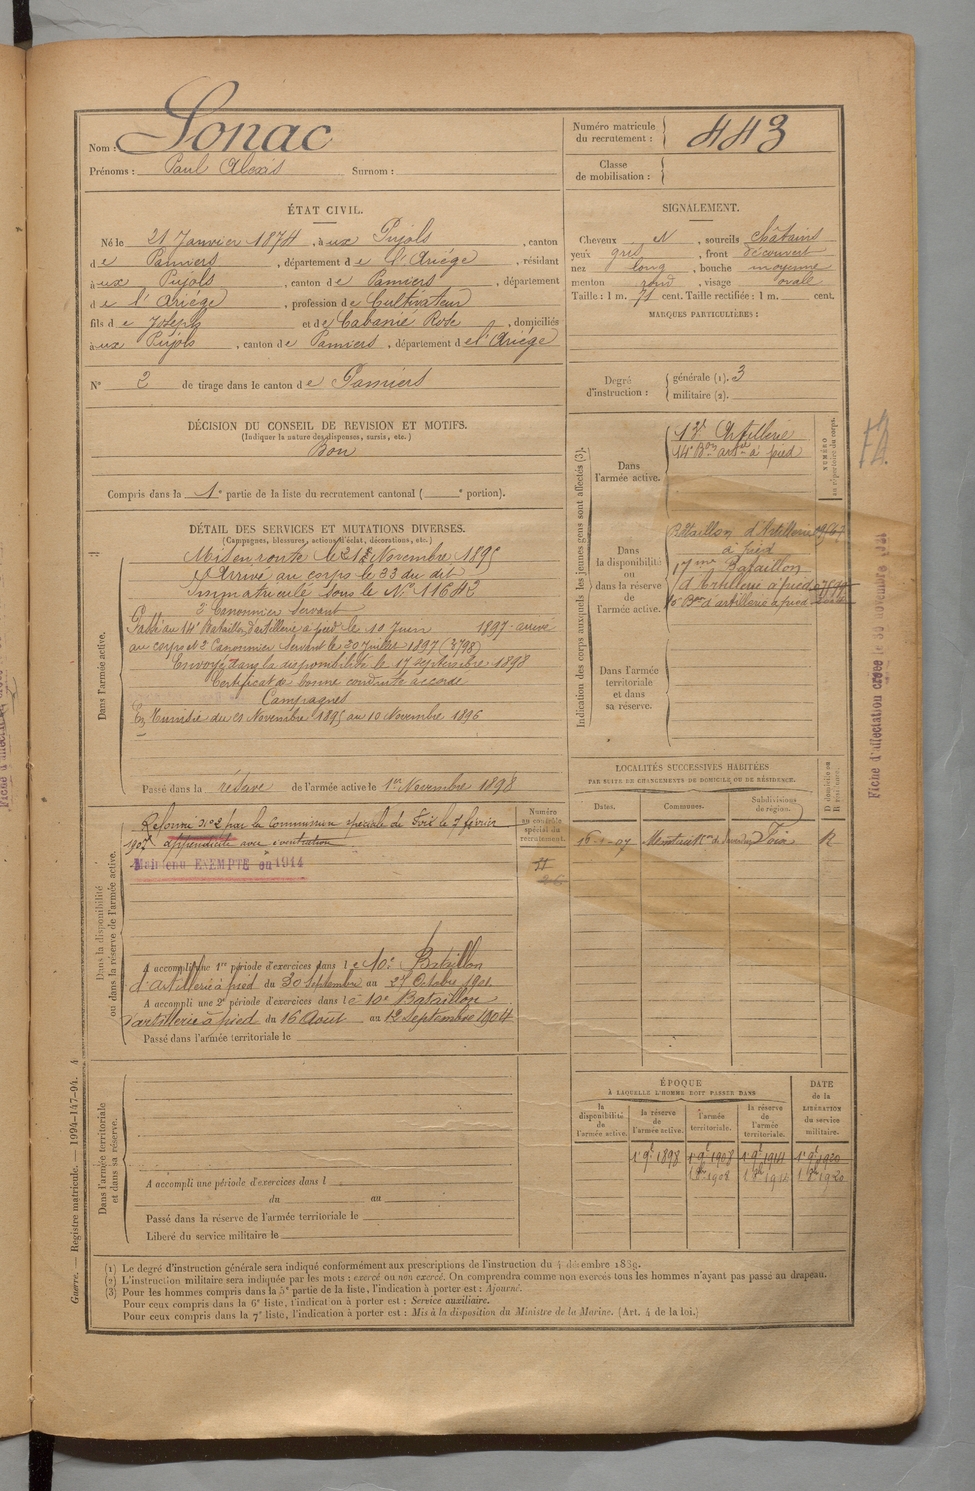 Nom : Sonac
Prénoms : Paul Alexis Surnom :
Numéro matricule du recrutement : 443
Classe de mobilisation :
ÉTAT CIVIL.
Né le 21 Janvier 1874, à ux Pujols, canton
de Pamiers, département de l'Ariège, résidant
à ux Pujols, canton de Pamiers, département
de l'Ariège, profession de Cultivateur
fils de Joseph et de Cabanié Rose, domiciliés
à ux Pujols, canton de Pamiers, département de l'Ariège
N° 2 de tirage dans le canton de Pamiers
SIGNALEMENT.
Cheveux N, sourcils châtains
yeux gris, front découvert
nez long, bouche moyenne
menton rond, visage ovale
Taille : 1 m. 71 cent. Taille rectifiée : 1 m. cent.
MARQUES PARTICULIÈRES :
Degré d'instruction : générale (1). 3
militaire (2).
DÉCISION DU CONSEIL DE REVISION ET MOTIFS.
(Indiquer la nature des dispenses, sursis, etc.)
Bon
Compris dans la 1re partie de la liste du recrutement cantonal ( e portion).
DÉTAIL DES SERVICES ET MUTATIONS DIVERSES.
(Campagnes, blessures, actions d'éclat, décorations, etc.)
Dans l'armée active.
Mis en route le Novembre 1895
Arrivé au corps le dudit
Immatriculé sous le N° 11643
2e Canonnier servant
Passé au 14e Bataillon d'artillerie à pied le 10 Juin 1897 arrivé
au corps et 2e Canonnier Servant le 20 Juillet 1897 (3/98)
Envoyé dans la disponibilité le 17 septembre 1898
Certificat de bonne conduite accordé
Campagnes
En Tunisie du Novembre 1895 au 10 Novembre 1896
Passé dans la réserve de l'armée active le 1er Novembre 1898
Indication des corps auxquels les jeunes gens sont affectés (3).
NUMÉRO au répertoire du corps.
Dans l'armée active.
Artillerie
14e Bon artie à pied
Dans la disponibilité ou dans la réserve de l'armée active.
Bataillon d'Artillerie
à pied
17me Bataillon
d'Artillerie à pied
Bon d'artillerie à pied
Dans l'armée territoriale et dans sa réserve.
72
Fiche d'affectation créée le novembre
LOCALITÉS SUCCESSIVES HABITÉES
PAR SUITE DE CHANGEMENTS DE DOMICILE OU DE RÉSIDENCE.
Dates. Communes. Subdivisions de région. D domicile ou R résidence.
07 Foix R
Dans la disponibilité ou dans la réserve de l'armée active.
Numéro au contrôle spécial du recrutement.
Réformé N° 2 par la Commission spéciale de Foix le février
appendicite avec éventration
Maintenu EXEMPTÉ en 1914
A accompli une 1re période d'exercices dans le 10e Bataillon
d'artillerie à pied du 30 Septembre au 27 Octobre 1901
A accompli une 2e période d'exercices dans le 10e Bataillon
d'artillerie à pied du 16 Août au 12 Septembre 1904
Passé dans l'armée territoriale le
Dans l'armée territoriale et dans sa réserve.
A accompli une période d'exercices dans l
du au
Passé dans la réserve de l'armée territoriale le
Libéré du service militaire le
ÉPOQUE
À LAQUELLE L'HOMME DOIT PASSER DANS
la disponibilité de l'armée active. la réserve de l'armée active. l'armée territoriale. la réserve de l'armée territoriale. DATE de la LIBÉRATION du service militaire.
1er 9bre 1898 1er 9bre 1908 1er 9bre 1914 1er 9bre 1920
1908 1914 1920
(1) Le degré d'instruction générale sera indiqué conformément aux prescriptions de l'instruction du 4 décembre 1889.
(2) L'instruction militaire sera indiquée par les mots : exercé ou non exercé. On comprendra comme non exercés tous les hommes n'ayant pas passé au drapeau.
(3) Pour les hommes compris dans la 5e partie de la liste, l'indication à porter est : Ajourné.
Pour ceux compris dans la 6e liste, l'indication à porter est : Service auxiliaire.
Pour ceux compris dans la 7e liste, l'indication à porter est : Mis à la disposition du Ministre de la Marine. (Art. 4 de la loi.)
Guerre. — Registre matricule. — 1994-147-94. 4